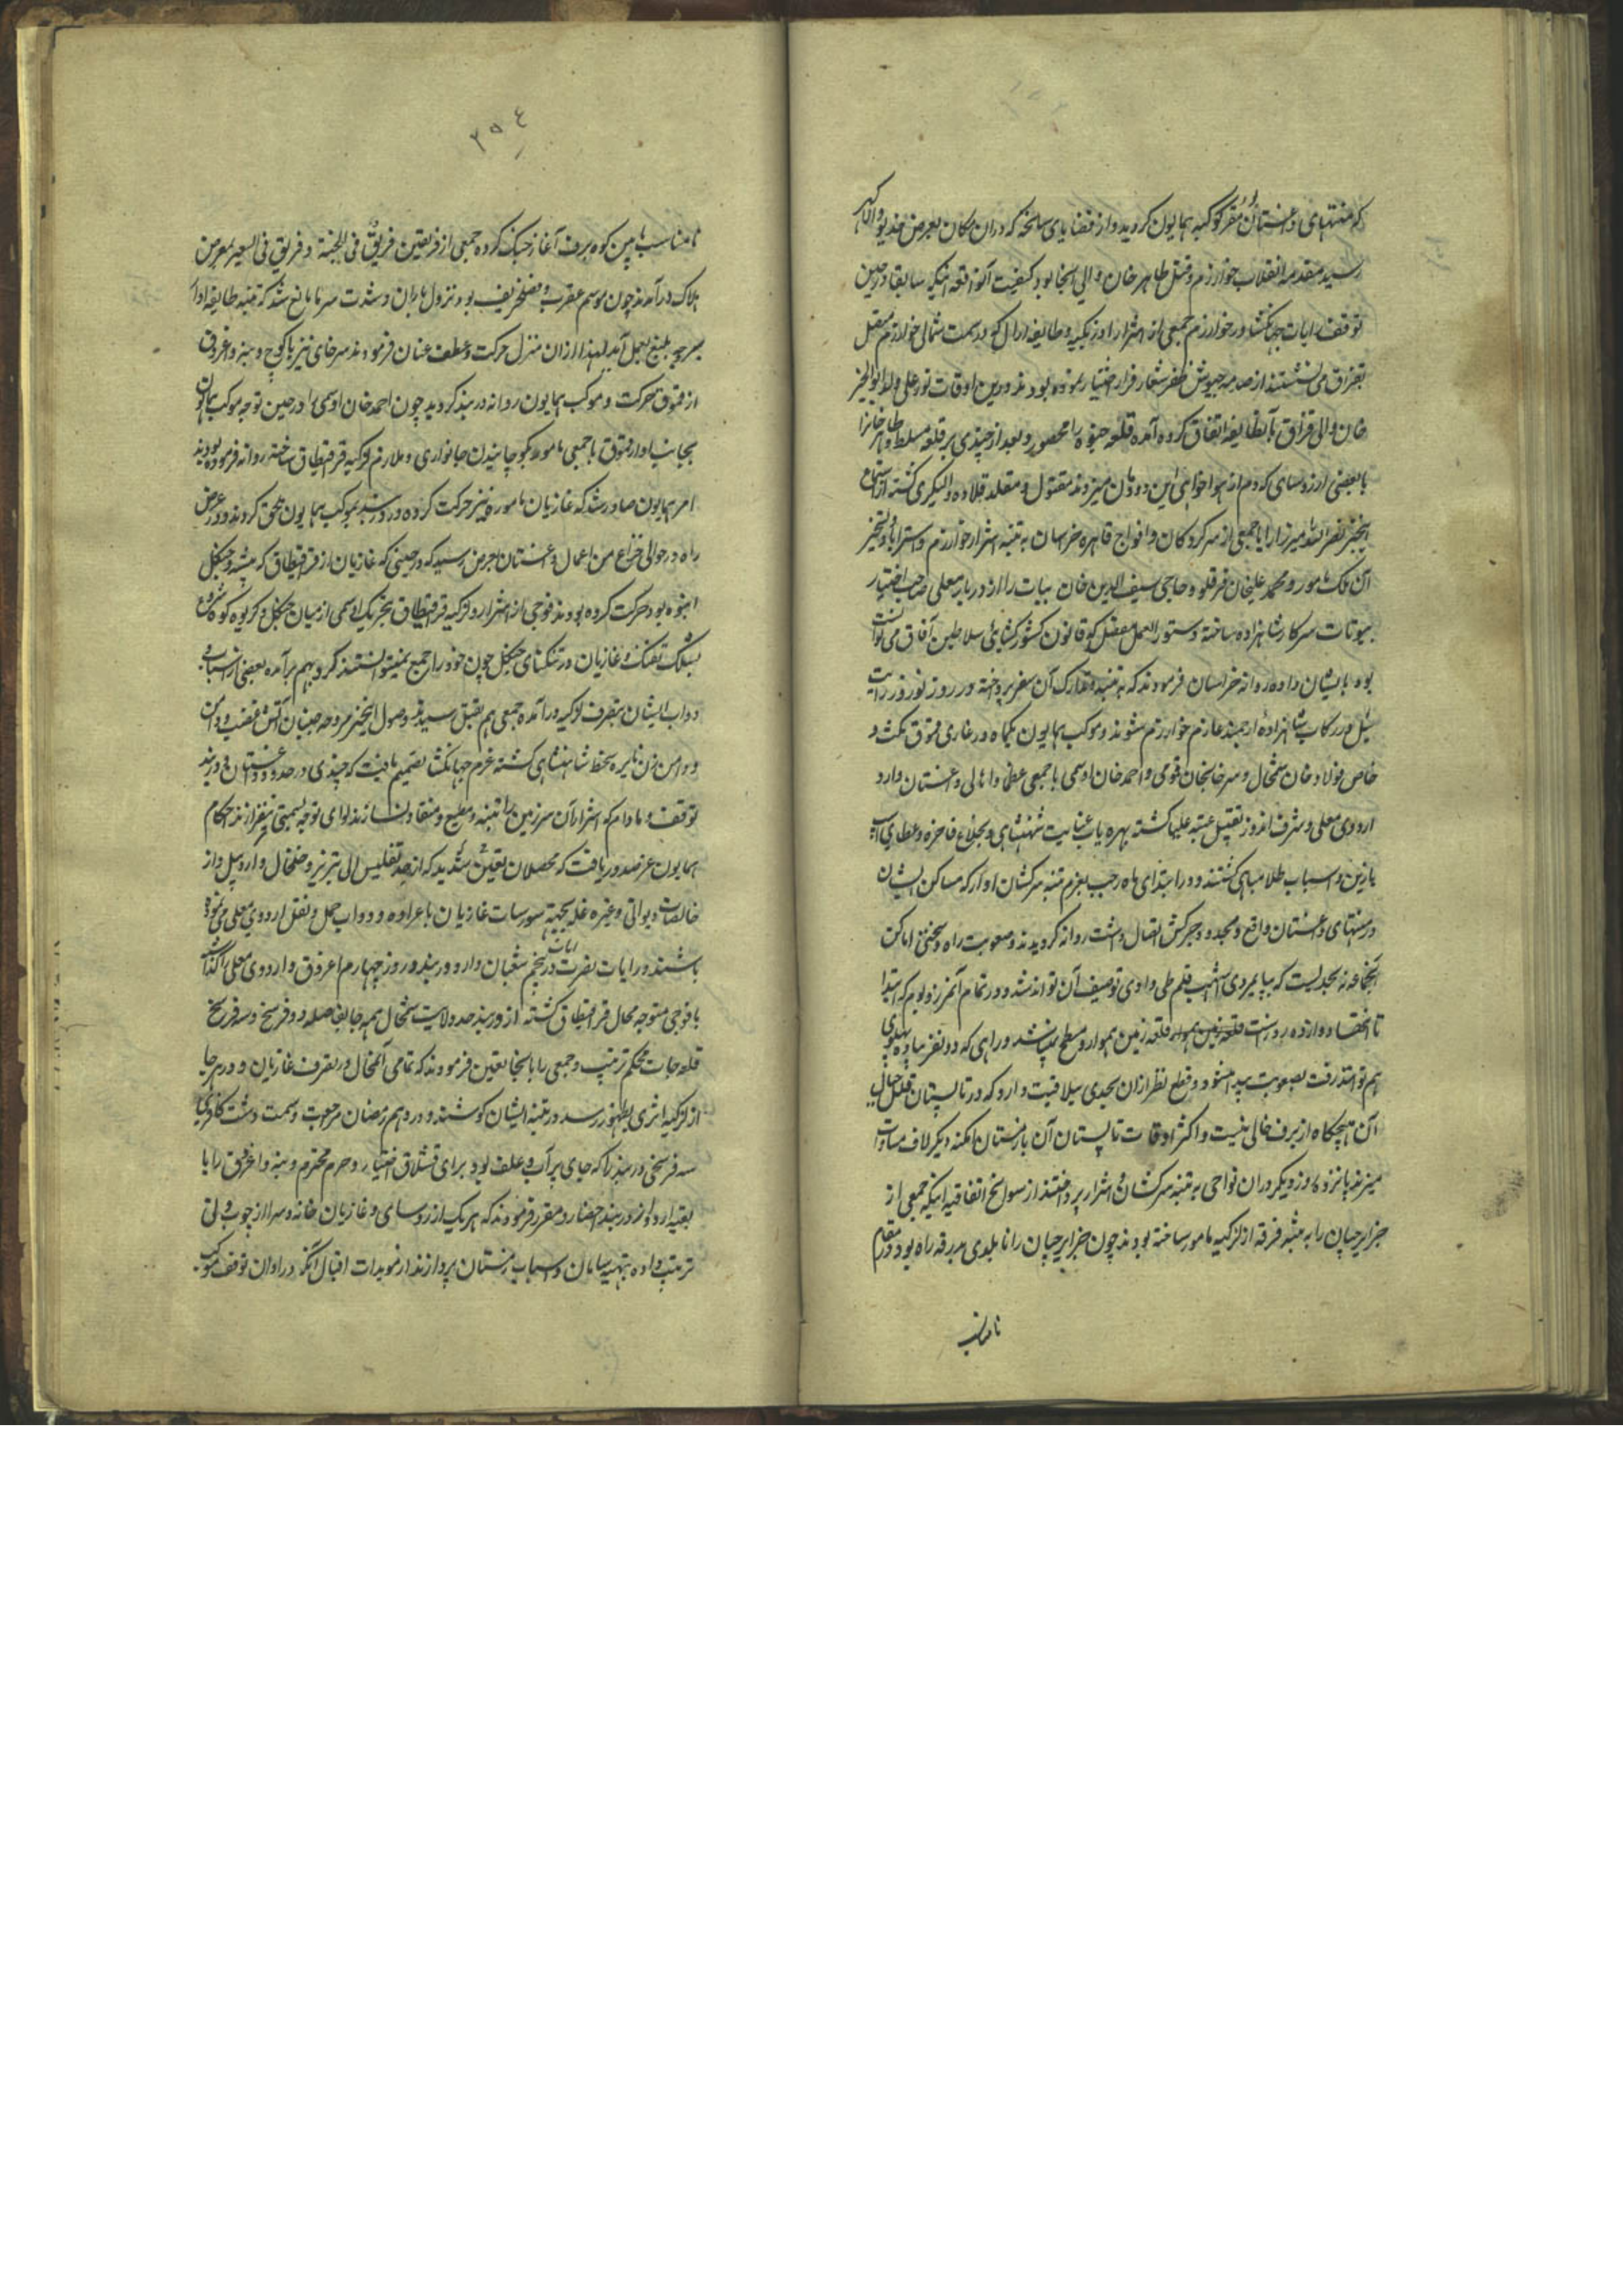 که منتهای داغستان مقر کوکبه همایون کردید و از قضایای سانحه که در آن مکان بعرض خدیو والا گهر
رسید مقدمه انقلاب خوارزم و قتل طاهر خان والی آنجا بود کیفیت آنواقعه اینکه سابقا در حین
توقف رایات جهانکشا در خوارزم جمعی از اشرار اوزبکیه و طایفه ارال که در سمت شمالی خوارزم
می نشستند از صدمه جیوش ظفر شعار فرار اختیار نموده بودند درین اوقات نور علی ولد ابو الخیر
خان والی قزاق با آنطایفه اتفاق کرده آمده قلعه خیوه را محصور و بعد از چندی بر قلعه مسلط و طاهر خانرا
با بعضی از رؤسای که دم از هوا خواهی این دودمان میزدند مقتول و مقلد قلاده کشته از استماع
اینخبر نصر الله میرزا را با جمعی از سرکردکان و افواج قاهره خراسان به تنبیه اشرار خوارزم و استرداد و تسخیر
آن ملک مامور و محمد علیخان قرقلو و حاجی سیف الدین خان بیات را از دربار معلی صاحب اختیار
بیوتات سرکار شاهزاده ساخته دستور العمل مفصل که قانون کشور کشایی سلاطین آفاق می توانست
بود بایشان داده روانه خراسان فرمودند که به تنبیه و تدارک آن سفر پرداخته در روز نوروز
در رکاب شاهزاده ارجمند عازم خوارزم شوند و موکب همایون یکماه در غازی قموق مکث و
خاص فولاد خان شمخال و سرخایخان قمومی و احمد خان اوسمی با جمعی عظما و اهالی داغستان وارد
اردوی معلی و شرف اندوز تقبیل عتبه علیا کشته بهره یاب عنایت شهنشاهی و بخلاع فاخره و عطای اسب
با زین و اسباب طلا مباهی کشتند و در ابتدای ماه رجب بعزم تنبیه سرکشان اوار که مساکن ایشان
در منتهای داغستان واقع و بحدود چرکس اتصال داشت روانه کردیدند و صعوبت راه و سختی اماکن
آنجا نه بحدیست که بپایمردی اشهب قلم طی وادی توصیف آن تواند شد و در تمام آنمرز و بوم که ابتدا
تا انتها دوازده روزه است قلعه زمین هموار و مسطح پیدا نشد و راهی که دو نفر پیاده پهلوی
هم توانند رفت بصعوبت پیدا میشود و قطع نظر از آن بحدی سیلا قیت دارد که در تابستان قلل جبال
آن هیچکاه از برف خالی نیست و اکثر اوقات تابستان آن با زمستان امکنه دیکر لاف مساوات
میزند پانزده روز دیکر در آن نواحی به تنبیه سرکشان و اشرار پرداختند از سوانح اتفاقیه اینکه جمعی از
جزایرچیان را به تنبیه فرقه از لکزیه مامور ساخته بودند چون جزایرچیان را نابلدی بدرقه راه بود در مقام
نامناسب
۲۵۴
نامناسب مابین کوه برف آغاز جنک کرده جمعی از فریقین فریق فی الجنة و فریق فی السعیر بمعرض
هلاک در آمدند چون موسم عقرب و فصل خریف بود نزول باران و شدت سرما مانع شد که تنبیه طایفه اوار
بر وجه بلیغ بعمل آید لهذا از آن منزل حرکت و عطف عنان فرمودند سرخای نیز با کوچ و بنه و اغروق
از قموق حرکت و موکب همایون روانه دربند کردید چون احمد خان اوسمی را در حین توجه موکب همایون
بجانب اوار از قموق با جمعی مامور بکوچانیدن خانواری و ملازم لکزیه قراقیطاق ساخته روانه فرموده بودند
امر همایون صادر شد که غازیان مامور نیز حرکت کرده در دربند بموکب همایون ملحق کردند در عرض
راه در حوالی خزاع من اعمال داغستان بعرض رسید که در حینی که غازیان از قراقیطاق که بیشه و جنکل
انبوه بود حرکت کرده بودند فوجی از اشرار لکزیه قراقیطاق بتحریک اوسمی از میان جنکل و کریوه کوه
بشلیک تفنک و غازیان در تنکنای جنکل چون خود را جمع نمیتوانستند کرد بهم برآمده بعضی از اسباب و
دواب ایشان بتصرف لکزیه درآمده جمعی هم بقتل رسیدند وصول اینخبر مروحه جنبان آتش غضب و
دامن زن نایره سخط شاهنشاهی کشته عزم جهانکشا تصمیم یافت که چندی در حدود داغستان و دربند
توقف و مادام که اشرار آن سرزمین را تنبیه و مطیع و منقاد نسازند لوای توجه بسمتی نیفرازند احکام
همایون عز صدور یافت که محصلان تعیین شدید که از حد تفلیس الی تبریز و خلخال و اردبیل و از
خالصات دیوانی و غیره غله بجهة سورسات غازیان با عراده و دواب حمل و نقل اردوی معلی می نموده
باشند و رایات نصرت آیات در پنجم شعبان وارد دربند و روز چهارم اغروق و اردوی معلی را گذاشته
با فوجی متوجه محال قراقیطاق کشته از دربند حد ولایت شمخال همه جا بفاصله دو فرسخ و سه فرسخ
قلعه جات محکم ترتیب و جمعی را بانجا تعیین فرمودند که تمامی آنمحال در تصرف غازیان و در هر جا
از لکزیه اثری بظهور رسد در تنبیه ایشان کوشند و در دهم رمضان مرجوعت و سمت دشت کافری
سه فرسخی دربند را که جای پر آب و علف بود برای قشلاق اختیار و حرم محترم و بنه و اغروق را با
بقیه اردو از دربند احضار و مقرر فرمودند که هر یک از رؤسای و غازیان خانه و سرا از چوب و نی
ترتیب داده بتهیه سامان و اسباب زمستان پردازند از مویدات اقبال آنکه در اوان توقف موکب